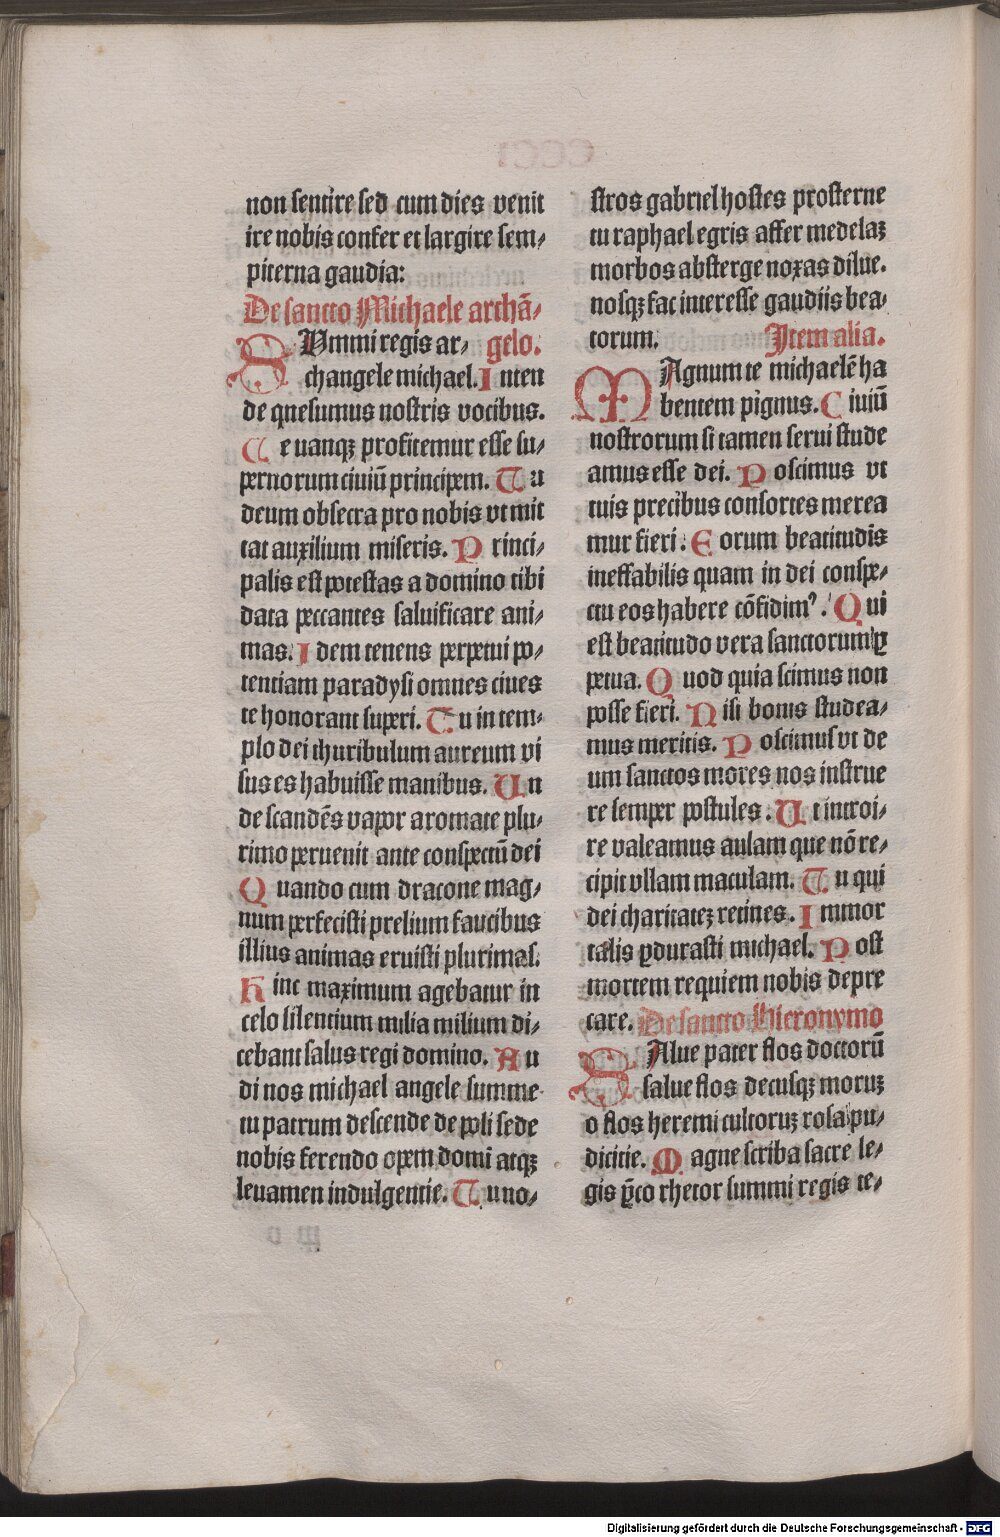 non sentire sed cum dies venit
ire nobis confer et largire sem⸗
piterna gaudia:
De sancto Michaele archā⸗
SVmmi regis ar⸗ gelo.
changele michael. Inten
de quesumus nostris vocibus.
Te vanqꝫ profitemur esse su⸗
pernorum ciuiū principem. Tu
deum obsecra pro nobis vt mit
tat auxilium miseris. Princi⸗
palis est potestas a domino tibi
data peccantes saluificare ani⸗
mas. Idem tenens perpetui po⸗
tentiam paradysi omnes ciues
te honorant superi. Tu in tem⸗
plo dei thuribulum aureum vi
sus es habuisse manibus. Un
de scandēs vapor aromate plu⸗
rimo peruenit ante conspectū dei
Quando cum dracone mag⸗
num perfecisti prelium faucibus
illius animas eruisti plurimas.
Hinc maximum agebatur in
celo silentium milia milium di⸗
cebant salus regi domino. Au
di nos michael angele summe
tu patrum descende de poli sede
nobis ferendo opem domī atqꝫ
leuamen indulgentie. Tu no⸗
stros gabriel hostes prosterne
tu raphael egris affer medelaꝫ
morbos absterge noxas dilue.
nosqꝫ fac interesse gaudiis bea⸗
torum. Item alia.
MAgnum te michaelē ha
bentem pignus. Ciuiū
nostrorum si tamen serui stude
amus esse dei. Poscimus vt
tuis precibus consortes merea
mur fieri. Eorum beatitudīs
ineffabilis quam in dei conspe⸗
ctu eos habere cōfidimꝰ. Qui
est beatitudo vera sanctorum ꝑ
petua. Quod quia scimus non
posse fieri. Nisi bonis studea⸗
mus meritis. Poscimus vt de
um sanctos mores nos instrue
re semper postules. Ut introi⸗
re valeamus aulam que nō re⸗
cipit vllam maculam. Tu qui
dei charitateꝫ retines. Immor
talis ꝑdurasti michael. Post
mortem requiem nobis depre
care. De sancto Hieronymo
SAlue pater flos doctorū
salue flos decusqꝫ moruꝫ
o flos heremi cultoruꝫ rosa pu⸗
dicitie. Magne scriba sacre le⸗
gis p̄co rhetor summi regis te⸗
Digitalisierung gefördert durch die Deutsche Forschungsgemeinschaft - DFG